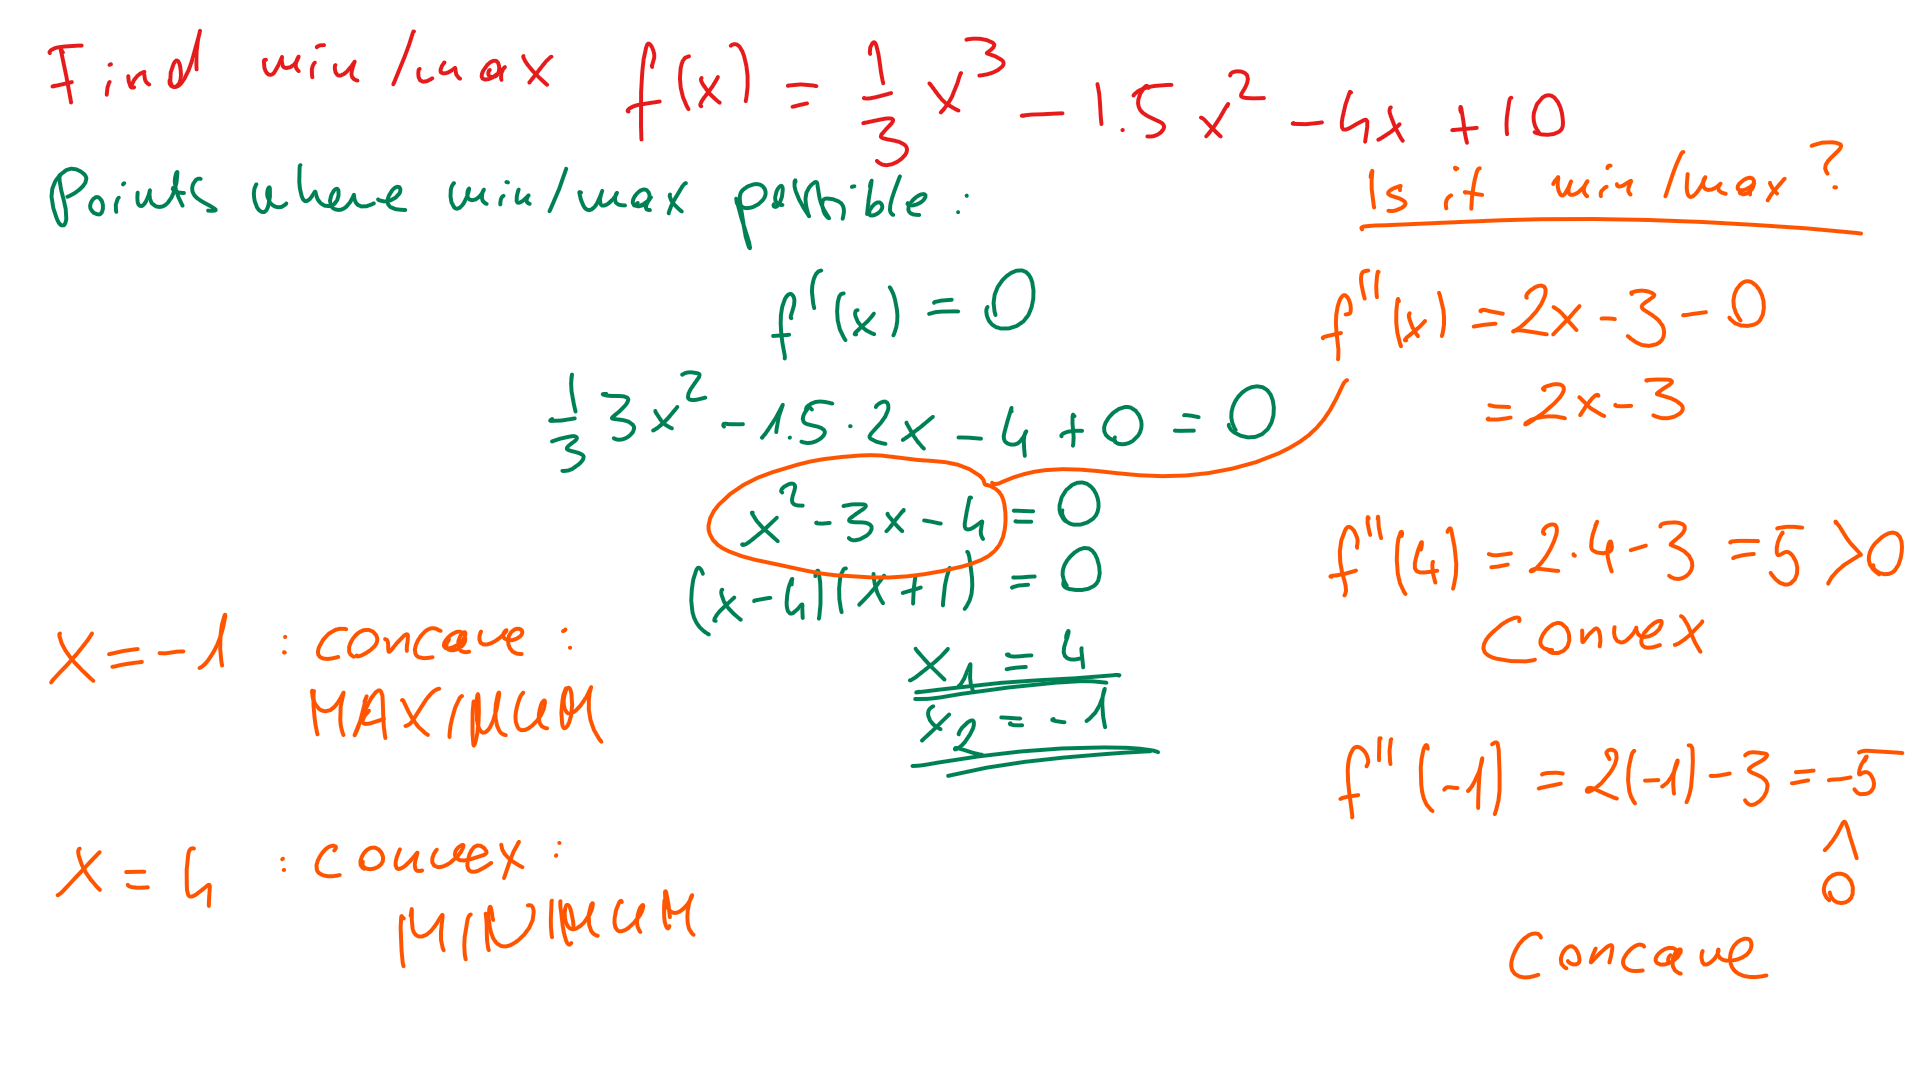 Find min/max f(x) = 1/3 x³ - 1.5x² - 4x + 10
Points where min/max possible:
f'(x) = 0
1/3 3x² - 1.5·2x - 4 + 0 = 0
x² - 3x - 4 = 0
(x-4)(x+1) = 0
x₁ = 4
x₂ = -1
Is it min/max?
f''(x) = 2x - 3 - 0
= 2x - 3
f''(4) = 2·4 - 3 = 5 > 0
convex
f''(-1) = 2(-1) - 3 = -5
∧
0
concave
x = -1 : concave :
MAXIMUM
x = 4 : convex :
MINIMUM